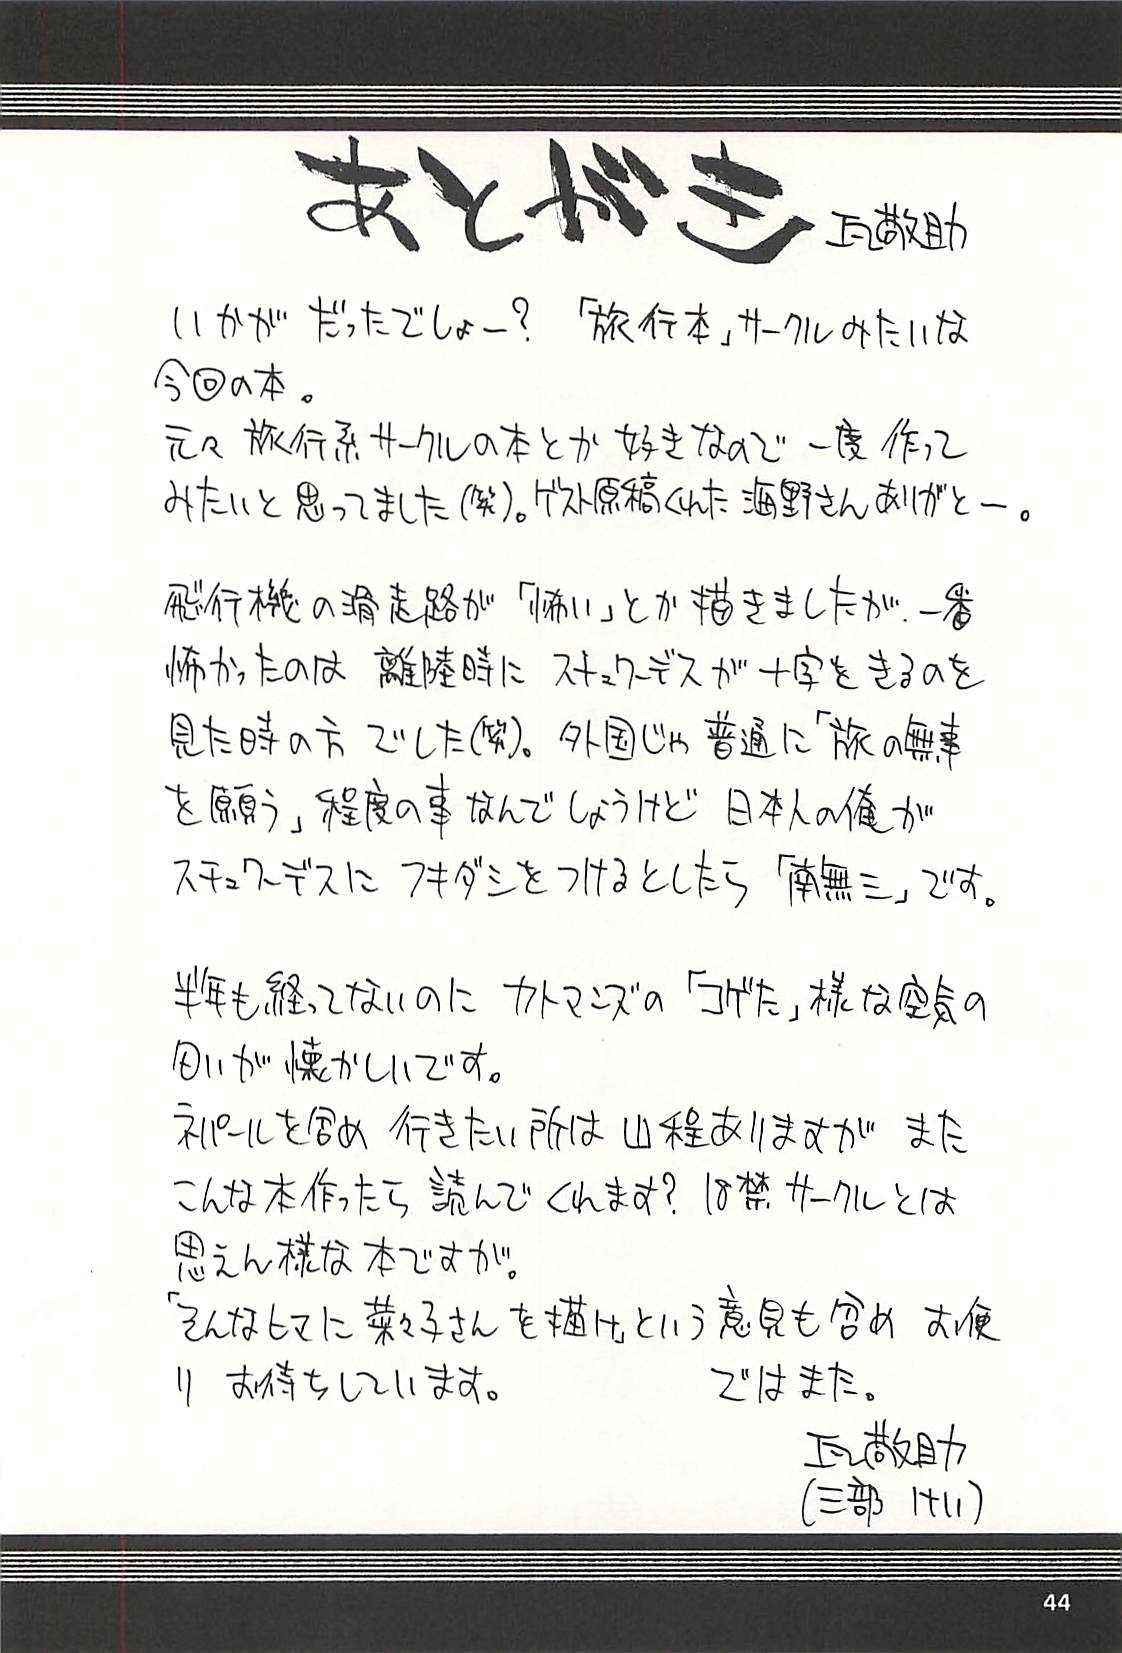 あとがき 瓦敬助
いかが だったでしょー? 「旅行本」サークルみたいな
今回の本。
元々 旅行系サークルの本とか 好きなので 一度 作って
みたいと 思ってました(笑)。ゲスト原稿くれた 海野さん ありがとー。
飛行機の滑走路が 「怖い」とか 描きましたが、一番
怖かったのは 離陸時に スチュワーデスが 十字をきるのを
見た時の方 でした(笑)。 外国じゃ 普通に「旅の無事
を願う」程度の事なんでしょうけど 日本人の俺が
スチュワーデスに フキダシをつけるとしたら 「南無三」です。
半年も経ってないのに カトマンズの 「コゲた」様な空気の
匂いが 懐かしいです。
ネパールを含め 行きたい所は 山程ありますが また
こんな本作ったら 読んでくれます? 18禁サークルとは
思えん様な本ですが。
「そんなヒマに 菜々子さん を描け」という意見も含め お便
り お待ちしています。 ではまた。
瓦敬助
(三部 けい)
44